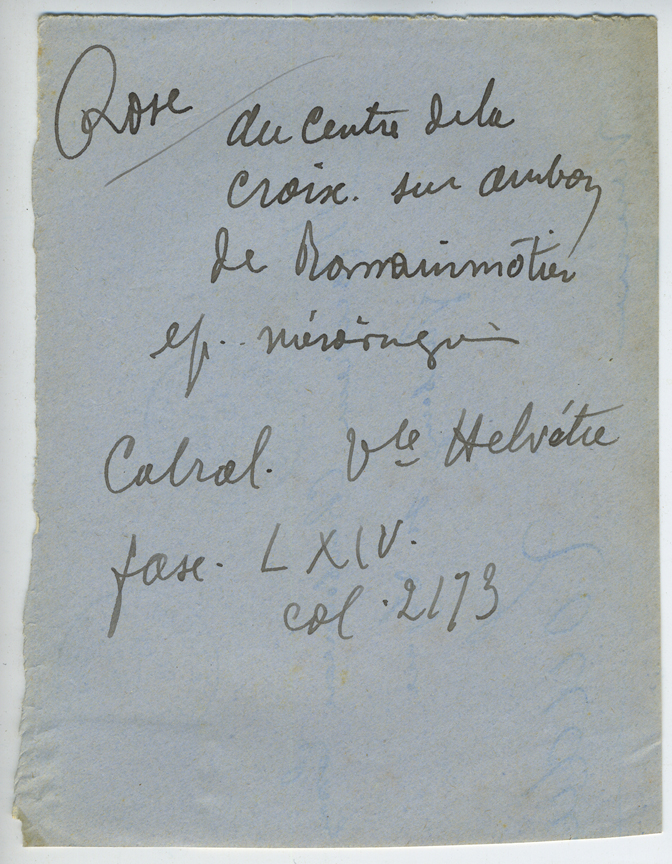 Rose
du centre de la
croix. sur ambon
de Romainmôtier
ep. mérovingi
Cabrol. Vle Helvétie
fasc. LXIV.
col. 2173